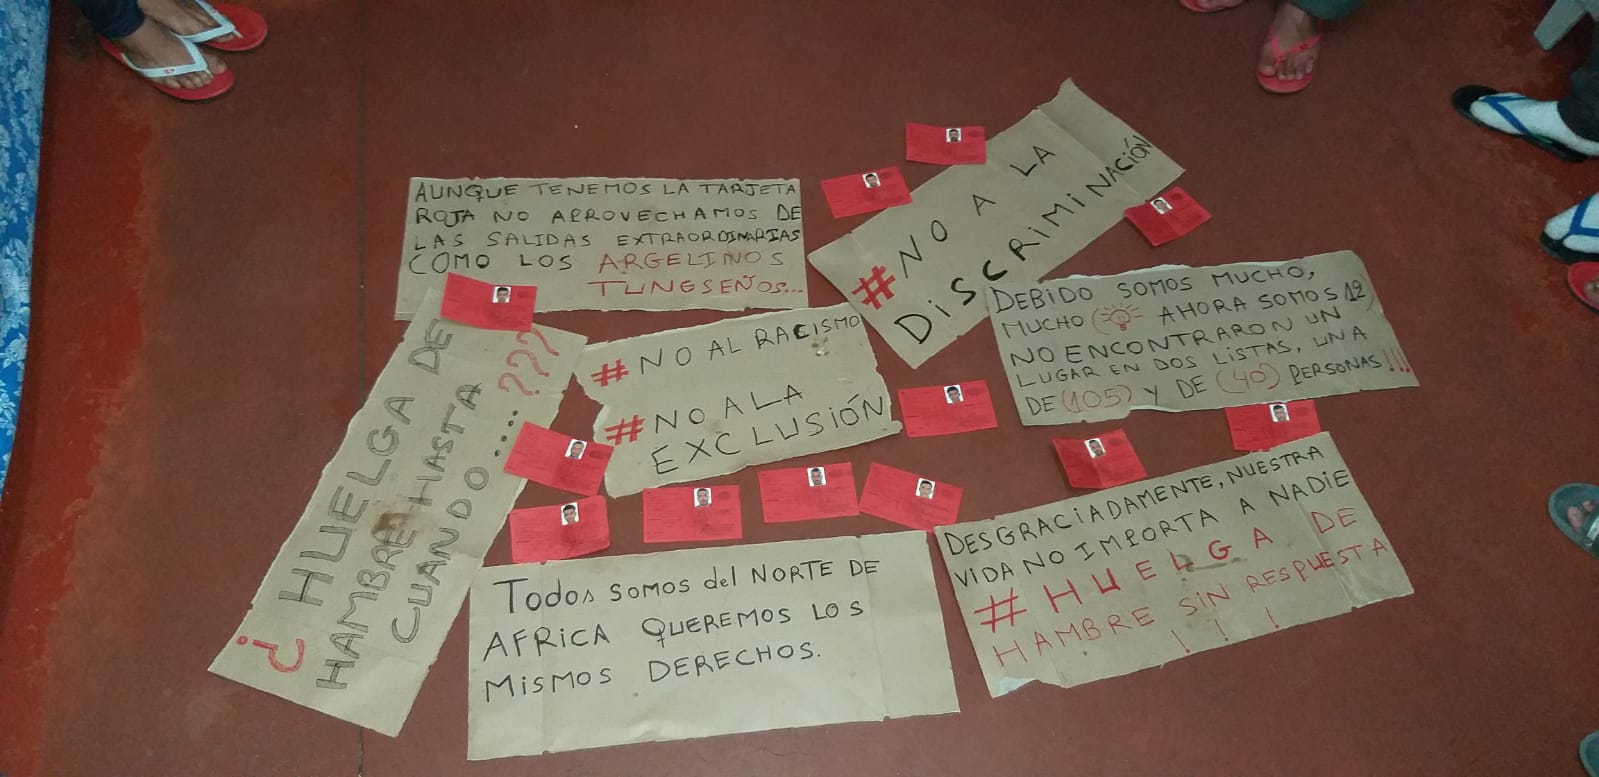 AUNQUE TENEMOS LA TARJETA
ROJA NO APROVECHAMOS DE
LAS SALIDAS EXTRAORDINARIAS
COMO LOS ARGELINOS
TUNESEÑOS...
#NO A LA
DISCRIMINACIÓN
DEBIDO SOMOS MUCHO,
MUCHO ( AHORA SOMOS 12)
NO ENCONTRARON UN
LUGAR EN DOS LISTAS, UNA
DE (105) Y DE (40) PERSONAS!!!
#NO AL RACISMO
#NO A LA
EXCLUSIÓN
¿HUELGA DE
HAMBRE HASTA
CUANDO....???
Todos SOMOS del NORTE DE
AFRICA QUEREMOS LOS
MISMOS DERECHOS.
DESGRACIADAMENTE, NUESTRA
VIDA NO IMPORTA A NADIE
#HUELGA DE
HAMBRE SIN RESPUESTA
!!!